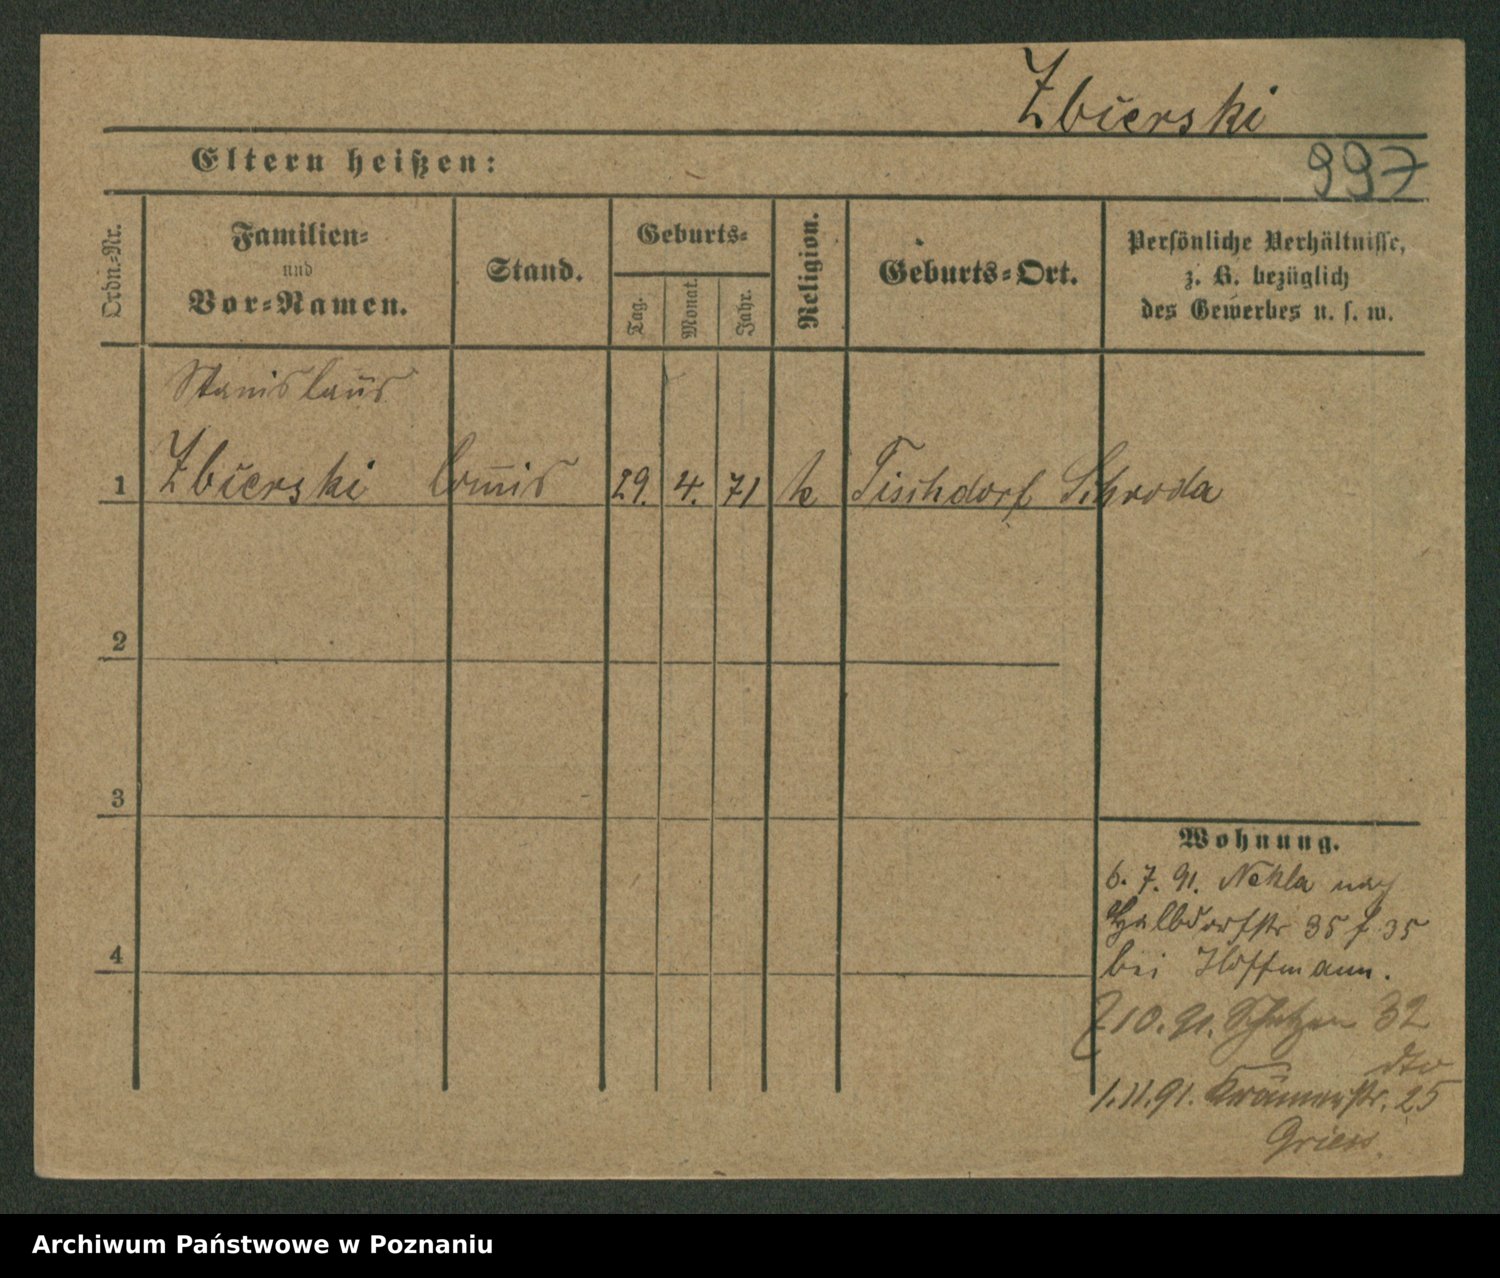 Zbierski
Eltern heißen:
997
Ordn.-Nr.
Familien-
und
Vor-Namen.
Stand.
Geburts-
Tag.
Monat.
Jahr.
Religion.
Geburts-Ort.
Persönliche Verhältnisse,
z. B. bezüglich
des Gewerbes u. s. w.
Stanislaus
1 Zbierski Com̅is 29. 4. 71 k Tischdorf Schroda
2
3
4
Wohnung.
6. 7. 91. Nekla nach
Halbdorfstr 35 f. 35
bei Hoffmann.
7 10. 91. Schützen 32
dto
1. 11. 91. Krämerstr. 25
Griess.
Archiwum Państwowe w Poznaniu